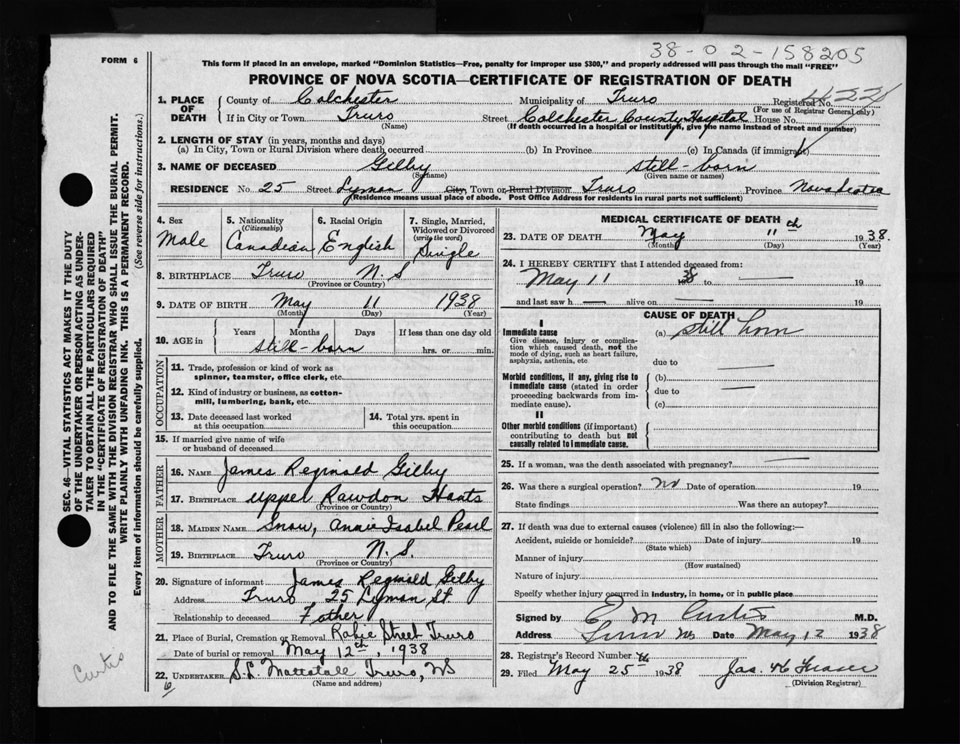 38-02-158205
FORM 6
This form if placed in an envelope, marked "Dominion Statistics—Free, penalty for improper use $300," and properly addressed will pass through the mail "FREE"
PROVINCE OF NOVA SCOTIA—CERTIFICATE OF REGISTRATION OF DEATH
1. PLACE OF DEATH { County of Colchester Municipality of Truro Registered No.
(For use of Registrar General only)
If in City or Town Truro Street Colchester County Hospital House No.
(Name) (If death occurred in a hospital or institution, give the name instead of street and number)
2. LENGTH OF STAY (in years, months and days)
(a) In City, Town or Rural Division where death occurred (b) In Province (c) In Canada (if immigrant)
3. NAME OF DECEASED Gilby still-born
(Surname) (Given name or names)
RESIDENCE No. 25 Street Lyman City, Town or Rural Division Truro Province Nova Scotia
(Residence means usual place of abode. Post Office Address for residents in rural parts not sufficient)
SEC. 46—VITAL STATISTICS ACT MAKES IT THE DUTY
OF THE UNDERTAKER OR PERSON ACTING AS UNDER-
TAKER TO OBTAIN ALL THE PARTICULARS REQUIRED
IN THE "CERTIFICATE OF REGISTRATION OF DEATH"
AND TO FILE THE SAME WITH THE DIVISION REGISTRAR WHO SHALL ISSUE THE BURIAL PERMIT.
WRITE PLAINLY WITH UNFADING INK. THIS IS A PERMANENT RECORD.
Every item of information should be carefully supplied. (See reverse side for instructions.)
4. Sex Male
5. Nationality (Citizenship) Canadian
6. Racial Origin English
7. Single, Married, Widowed or Divorced (write the word) Single
8. BIRTHPLACE Truro N. S
(Province or Country)
9. DATE OF BIRTH May 11 1938
(Month) (Day) (Year)
10. AGE in { Years Months Days If less than one day old
still-born hrs. or min.
OCCUPATION
11. Trade, profession or kind of work as
spinner, teamster, office clerk, etc
12. Kind of industry or business, as cotton-
mill, lumbering, bank, etc.
13. Date deceased last worked
at this occupation
14. Total yrs. spent in
this occupation
15. If married give name of wife
or husband of deceased
FATHER
16. NAME James Reginald Gilby
17. BIRTHPLACE Upper Rawdon Hants
(Province or Country)
MOTHER
18. MAIDEN NAME Snow, Annie Isabel Pearl
19. BIRTHPLACE Truro N. S.
(Province or Country)
20. Signature of informant James Reginald Gilby
Address Truro 25 Lyman St.
Relationship to deceased Father
21. Place of Burial, Cremation or Removal Robie Street Truro
Date of burial or removal May 12th, 1938
22. UNDERTAKER S.L. Mattatall Truro, NS
(Name and address)
Curtis
6
MEDICAL CERTIFICATE OF DEATH
23. DATE OF DEATH May 11th 1938.
(Month) (Day) (Year)
24. I HEREBY CERTIFY that I attended deceased from:
May 11 1938 to 19
and last saw h alive on 19
CAUSE OF DEATH
I
Immediate cause (a) still born
Give disease, injury or complica-
tion which caused death, not the
mode of dying, such as heart failure,
asphyxia, asthenia, etc
due to
Morbid conditions, if any, giving rise to
immediate cause (stated in order
proceeding backwards from im-
mediate cause).
(b)
due to
(c)
II
Other morbid conditions (if important)
contributing to death but not
causally related to immediate cause.
25. If a woman, was the death associated with pregnancy?
26. Was there a surgical operation? No Date of operation 19
State findings Was there an autopsy?
27. If death was due to external causes (violence) fill in also the following:—
Accident, suicide or homicide? Date of injury 19
(State which)
Manner of injury
(How sustained)
Nature of injury
Specify whether injury occurred in industry, in home, or in public place
Signed by E M Curtis M.D.
Address Truro NS Date May 12 1938
28. Registrar's Record Number
29. Filed May 25 1938 Jas. H Fraser
(Division Registrar)